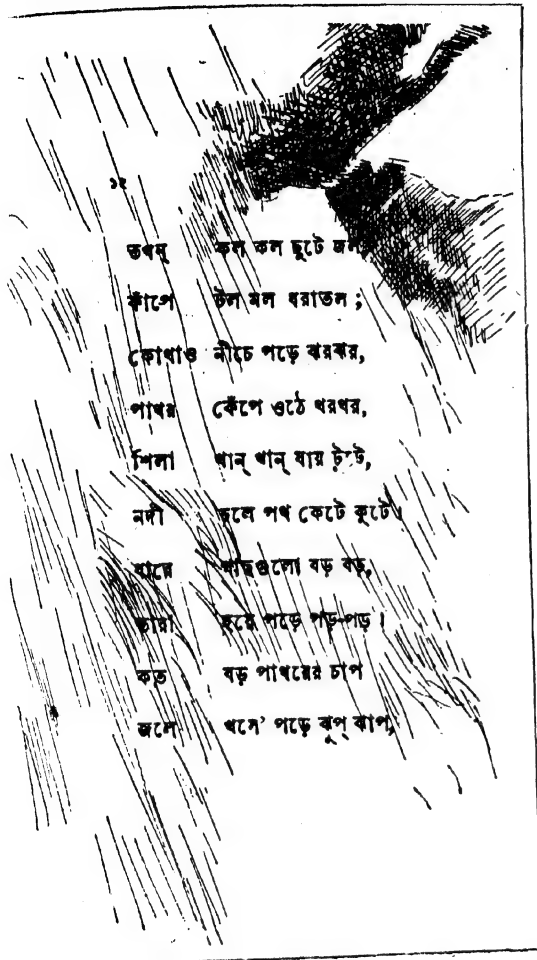 ১২
তখন্ কল কল ছুটে জল,
কাঁপে টল মল ধরাতল ;
কোথাও নীচে পড়ে ঝরঝর,
পাথর কেঁপে ওঠে থরথর,
শিলা খান্ খান্ যায় টুটে,
নদী চলে পথ কেটে কুটে।
ধারে গাছগুলো বড় বড়,
তারা হয়ে পড়ে পড়-পড়।
কত বড় পাথরের চাপ
জলে খসে' পড়ে ঝুপ্ ঝাপ,